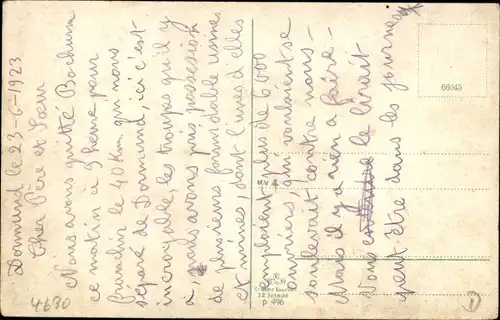 Dormund le 23-6-1923
Cher Père et Sœur
Nous avons quitté Bochum
ce matin à 3 heure pour
franchir le 40 Km. qui nous
séparé de Dormund, ici c'est
incroyable, les troupes qu'il y
a, nous avons pris possesion
de plusieurs formidable usines
et mines, dont l'unes d'elles
emploient plus de 6000
ouvriers qui voulaient se
soulevait contre nous-
Mais il y a rien a faire-
Vous le lirait
peut-être dans les journeaux
4630
66945
p 496